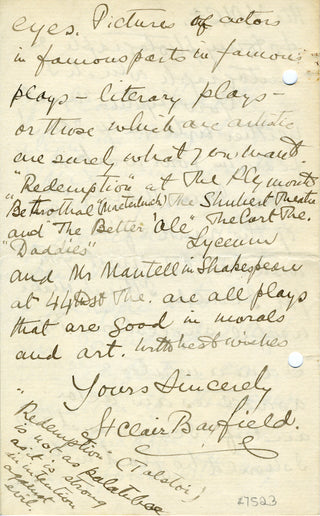 eyes. Pictures of actors
in famous parts in famous
plays — literary plays —
or those which are artistic
are surely what you want.
"Redemption" at The Plymouth
Bethrothal (Maeterlinck) The Shubert Theatre
and "The Better 'Ole" The Cort The.
"Daddies" Lyceum
and Mr Mantell in Shakespeare
at 44th St The. are all plays
that are good in morals
and art. With best wishes
Yours Sincerely
St Clair Bayfield.
"Redemption (Tolstoi)
is not as palatable
as it is strong
in intention
against
evil.
27523